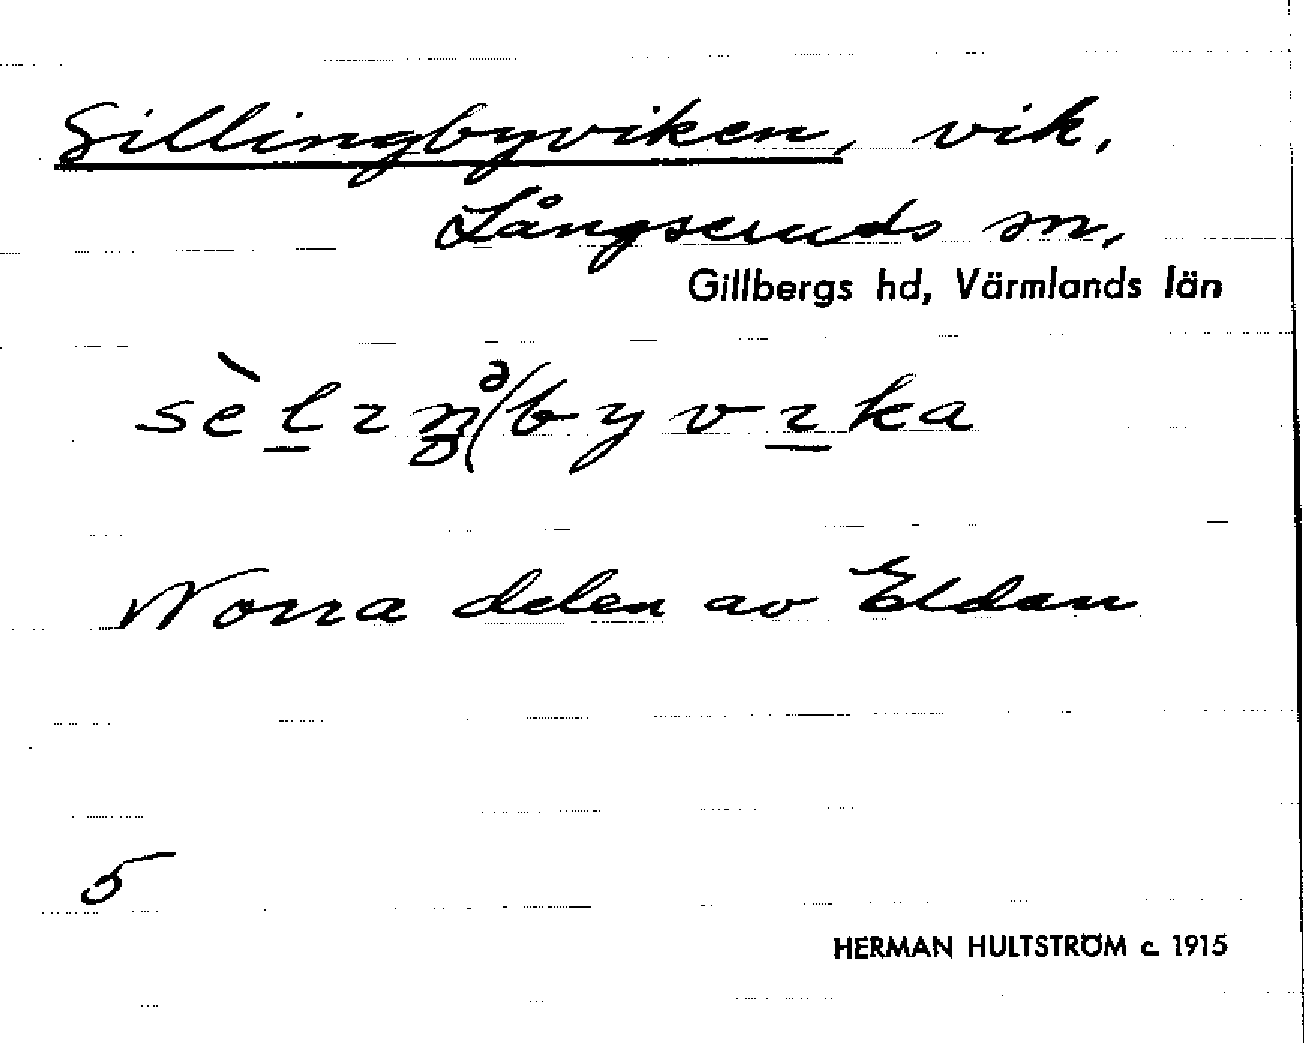 Sillingbyviken, vik,
Långseruds sn,
Gillbergs hd, Värmlands län
Norra delen av Eldan
5
HERMAN HULTSTRÖM c. 1915